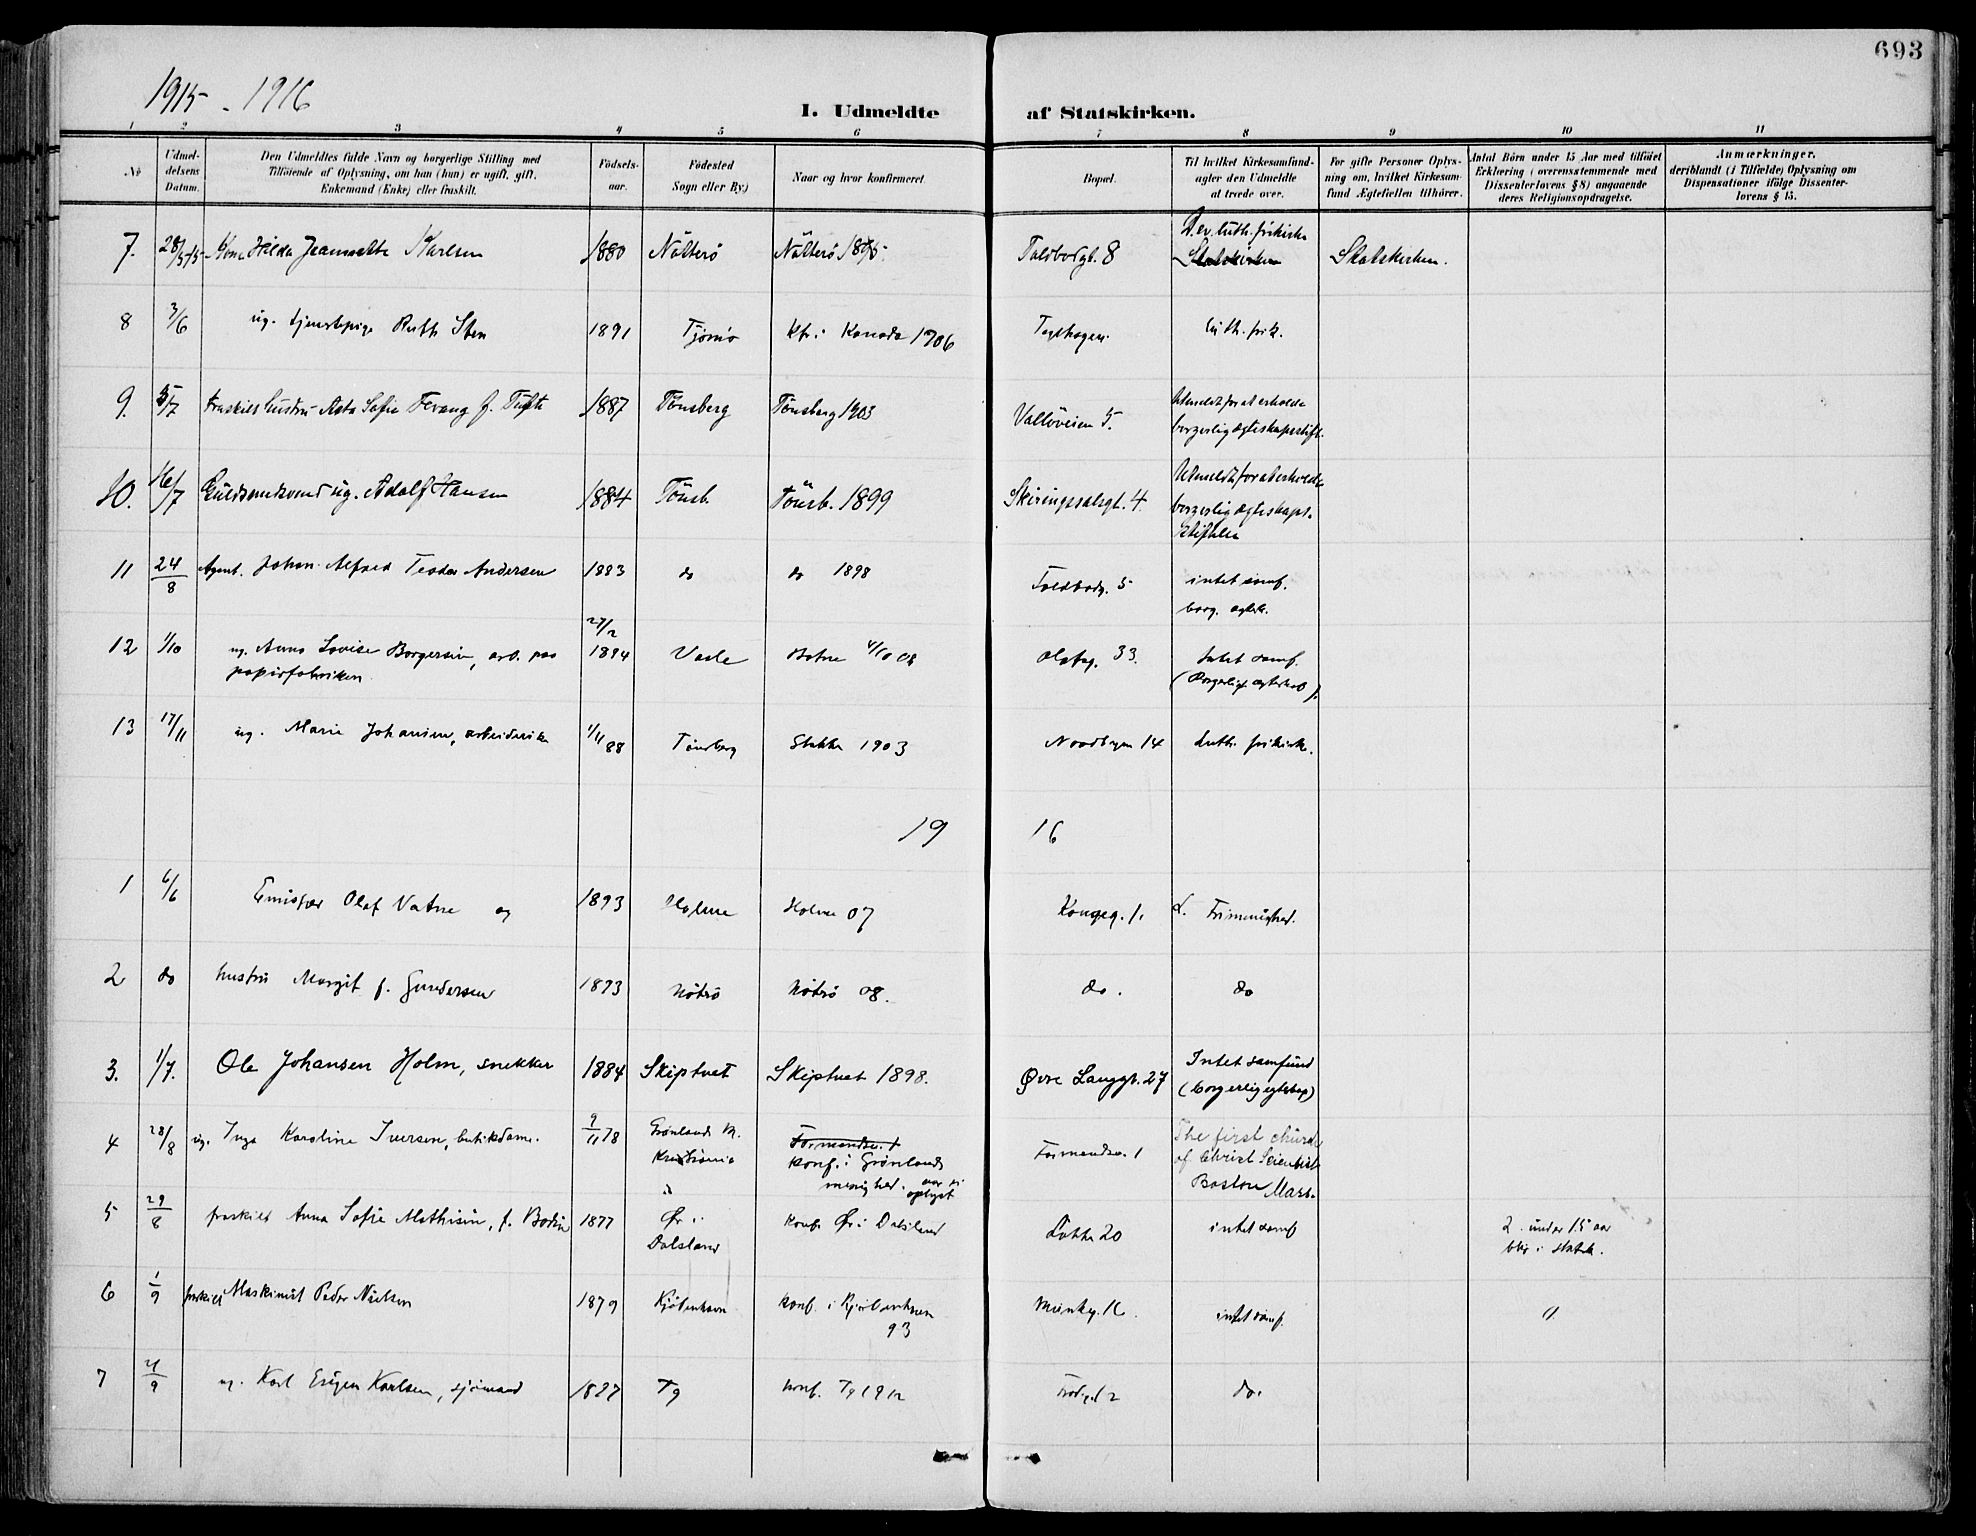 693
1915 - 1916
I. Udmeldte af Statskirken.
1 2 3 4 5 6 7 8 9 10 11
No
Udmel-
delsens
Datum.
Den Udmeldtes fulde Navn og borgerlige Stilling med
Tilföiende af Oplysning, om han (hun) er ugift, gift,
Enkemand (Enke) eller fraskilt.
Födsels-
aar.
Födested
Sogn eller By.)
Naar og hvor konfirmeret.
Bopæl.
Til hvilket Kirkesamfund-
agter den Udmeldte
at træde over.
For gifte Personer Oplys-
ning om, hvilket Kirkesam-
fund Ægtefællen tilhörer.
Antal Börn under 15 Aar med tilföiet
Erklæring (overensstemmende med
Dissenterlovens § 8) angaaende
deres Religionsopdragelse.
Anmærkninger,
deriblandt (i Tilfælde) Oplysning om
Dispensationer ifölge Dissenter-
lovens § 15.
D. ev. luth. frikirke
7. 28/5-15 Kone Hilda Jeannette Karlsen 1880 Nötterö Nötterö 1895. Toldbodgt. 8 Statskirken Statskirken.
8 3/6 ug. tjenestepige Ruth Sten 1891 Tjömö kfr. i Kanada 1906 Teglhagen. luth. frik.
9. 5/7 fraskilt hustru Asta Sofie Fevang f. Tufte 1887 Tönsberg Tönsberg 1903 Vallöveien 5. Utmeldt for at erholde
borgerlig ægteskapsstift.
10. 16/7 Guldsmedsvend ug. Adolf Hansen 1884 Tönsb. Tönsb. 1899 Skiringssalsgt. 4. Utmeldt for at erholde
borgerlig ægteskaps-
stiftelse
11 24/8 Agent. Johan Alfred Teodor Andersen 1883 do do 1898 Toldbodg. 5 intet samf.
borg. egtesk.
12 1/10 ug. Anna Lovise Borgersen, arb. paa 27/2 1894 Vaale Botne 4/10 08 Olafsg. 33. Intet samf.
papirfabriken. (Borgerligt egteskab).
13 17/11 ug. Marie Johansen, arbeiderske 1/11 88 Tönsberg Stokke 1903 Nordbyen 14 Luth. frikirke.
19 16
1 6/6 Emissær Olaf Vatne og 1893 Holme Holme 07 Kongeg. 1. L. Frimenighed.
2 do hustru Margit f. Gundersen 1893 Nötrö Nötrö 08. do. do
3. 1/7. Ole Johansen Holm, snekker 1884 Skiptvet Skiptvet 1898. Øvre Langgt. 27 Intet samfund
(borgerlig egteskap)
4 28/8 ug. Inga Karoline Iversen, butikdame. 9/11 78 Grönlands M.
Kristiania
Formandsv. 1
konf. i Grönlands
menighed. aar ei
oplyst
Formandsv. 1 The first church
of Christ Scientist
Boston Mass.
5 29/8 fraskilt Anna Sofie Mathisen, f. Bodin 1877 Ør i
Dalsland
konf. Ør i Dalsland 20 intet samf 2 under 15 aar
blir i statsk.
6 1/9 fraskilt Maskinist Peder Nielsen 1879 Kjöbenhavn konf. i Kjöbenhavn
93
Munkeg. 16. intet samf. 0
7 21/9 ug. Karl Eugen Karlsen, sjömand 1897 Tg konf. Tg 1912 do.